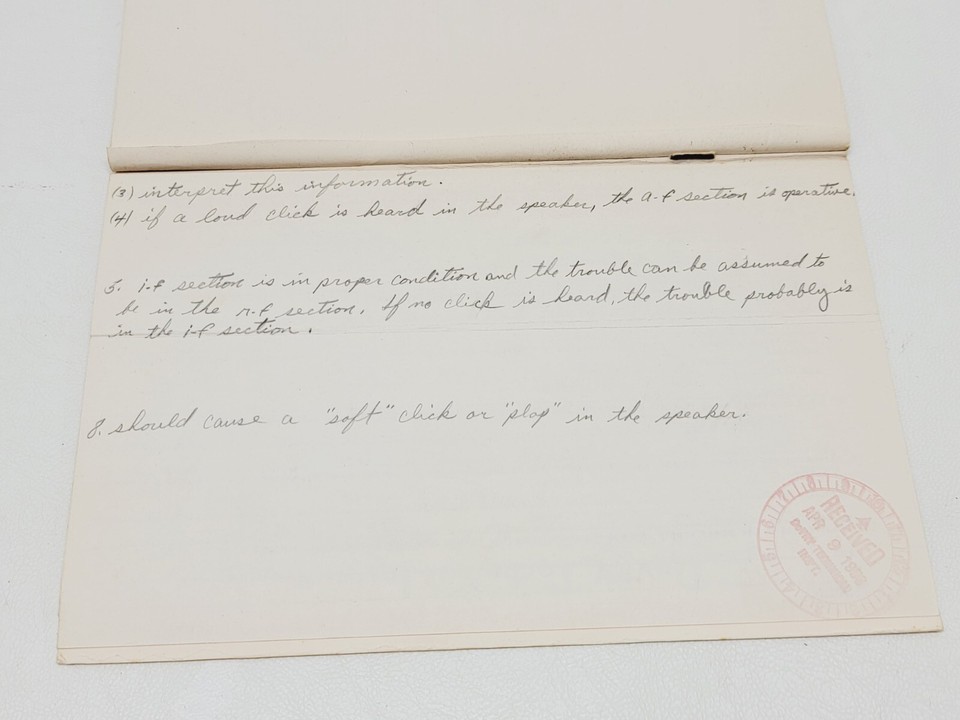 (3) interpret this information.
(4) if a loud click is heard in the speaker, the a-f section is operative.
5. i-f section is in proper condition and the trouble can be assumed to
be in the r-f section. If no click is heard, the trouble probably is
in the i-f section.
8. should cause a "soft" click or "plop" in the speaker.
RECEIVED
APR 9
DEPT.